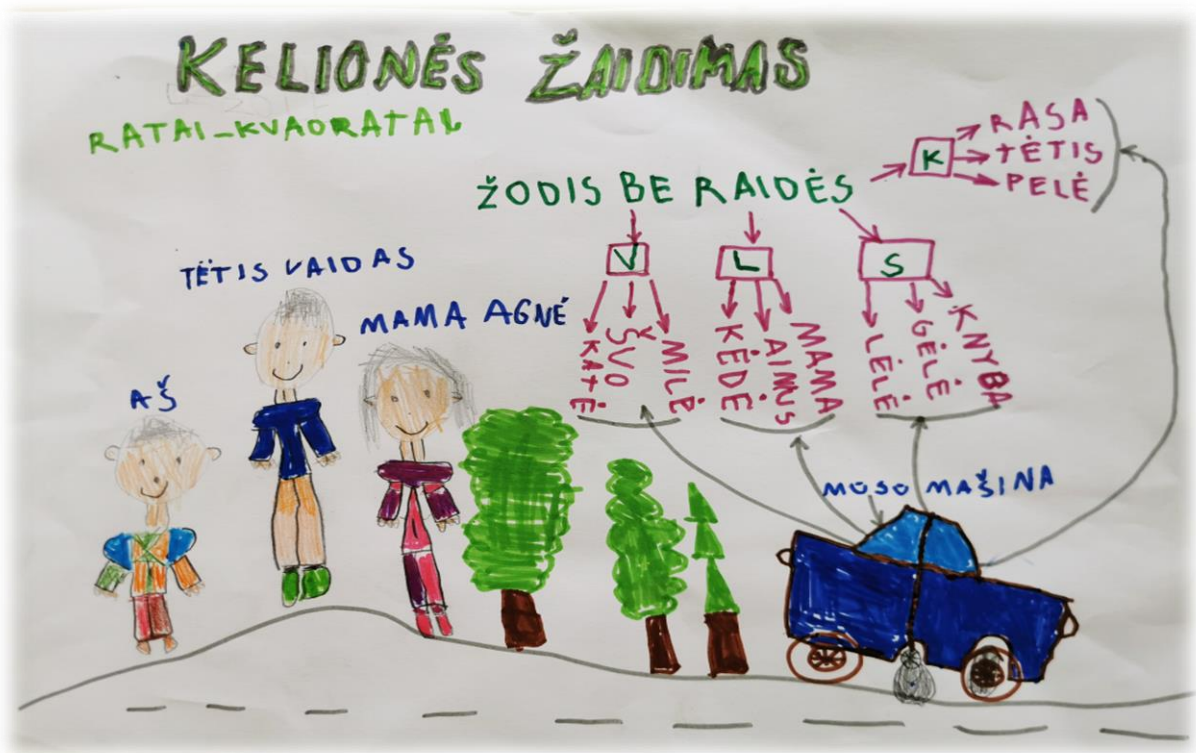 KELIONĖS ŽAIDIMAS
RATAI-KVADRATAI
ŽODIS BE RAIDĖS
K
RASA
TĖTIS
PELĖ
V
KATĖ
ŠVO
MILĖ
L
KĖDĖ
AIMUS
MAMA
S
LĖLĖ
GĖLĖ
KNYBA
TĖTIS VAIDAS
MAMA AGNĖ
AŠ
MŪSŲ MAŠINA